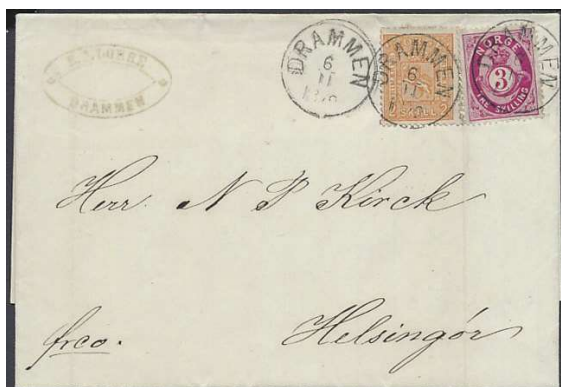 DRAMMEN
DRAMMEN
6
11
DRAMMEN
6
11
SKILL
DRAMMEN
NORGE
3
TRE SKILLING
Herr. N P Kirck
frco.
Helsingör